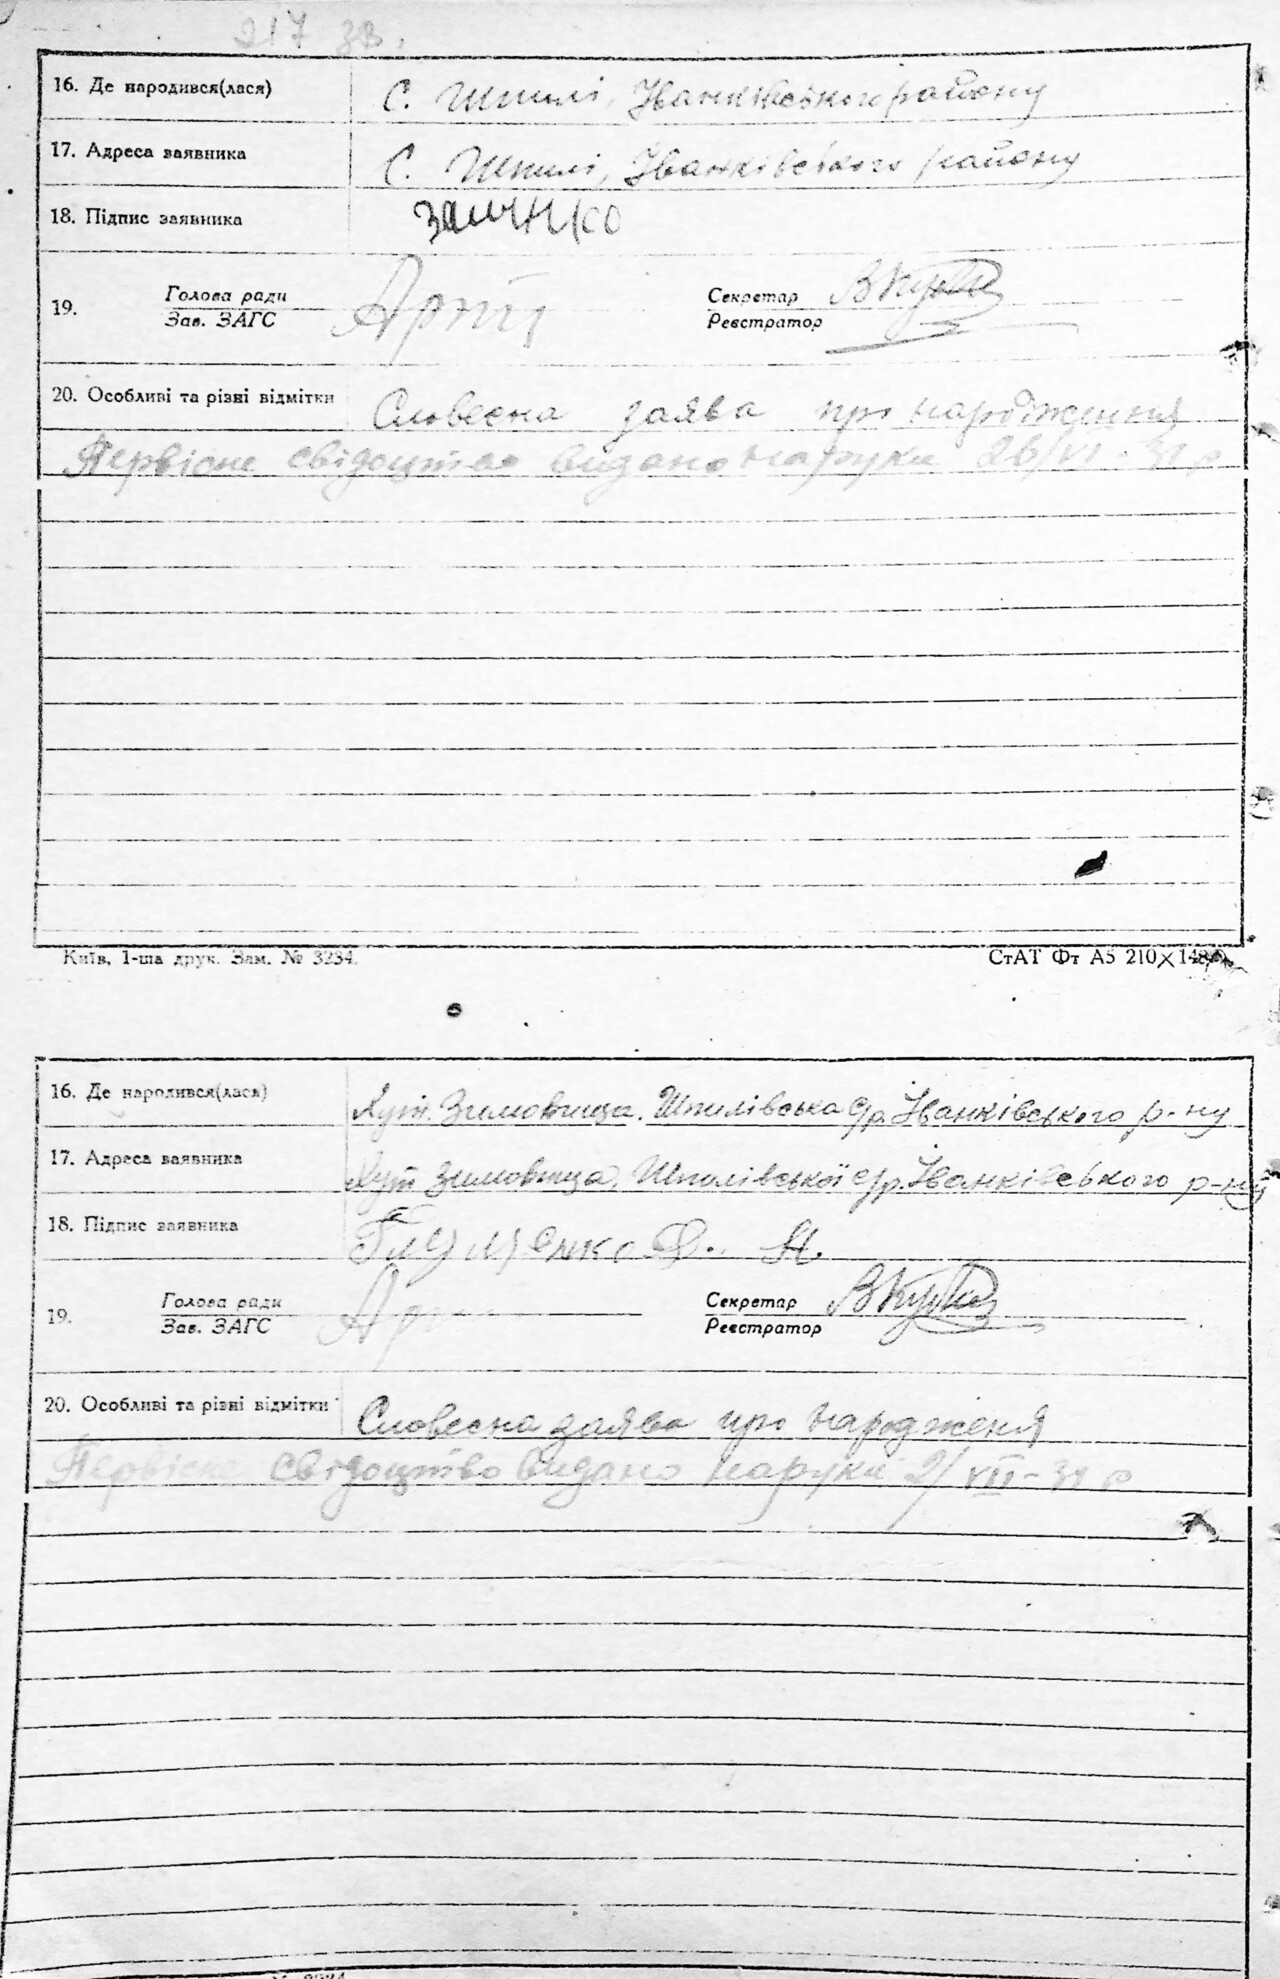 217 зв.
16. Де народився(лася) С. Шпилі, Іванківського району
17. Адреса заявника С. Шпилі, Іванківського району
18. Підпис заявника
19. Голова ради Секретар
Зав. ЗАГС Реєстратор
20. Особливі та різні відмітки Словесна заява про народження
Первісне свідоцтво видано наруки 26/VI - 31 р
Київ, 1-ша друк. Зам. № 3234. СтАТ Фт А5 210×148
16. Де народився(лася) Хут. Зимовища. Шпилівська с/р. Іванківського р-ну
17. Адреса заявника Хут Зимовища, Шпилівської с/р. Іванківського р-ну
18. Підпис заявника
19. Голова ради Секретар
Зав. ЗАГС Реєстратор
20. Особливі та різні відмітки Словесна заява про народженя
Первісне свідоцтво видано наруки 2/VII - 31 р